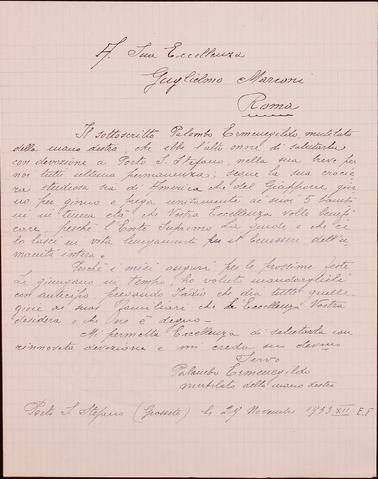 A Sua Eccellenza
Guglielmo Marconi
Roma
Il sottoscritto Palombo Ermenegildo mutilato
della mano destra, che ebbe l'alto onore di salutarla
con devozione a Porto S. Stefano, nella sua breve per
noi tutti ultima permanenza; segue la sua crocie
ra studiosa sia di America che del Giappone gior
no per giorno e prega unitamente ai suoi 5 bambi
ni in tenera età che Vostra Eccellenza volle benefi
care, perchè l'Ente Supremo La guide e che ce
lo lasci in vita lungamente per il benessere dell'u
manità intera.
Perchè i miei auguri per le prossime feste
Le giungano in tempo, ho voluto mandarglieli
con anticipo, pregando Iddio che dia tutte quelle
gioie ai suoi famigliari che la Eccellenza Vostra
desidera, e che ne è degno.
Mi permetta Eccellenza di salutarla con
rinnovata devozione e mi creda suo devmo
Servo
Palombo Ermenegildo
mutilato della mano destra
Porto S. Stefano (Grosseto) li 29 Novembre 1933 XII E.F.